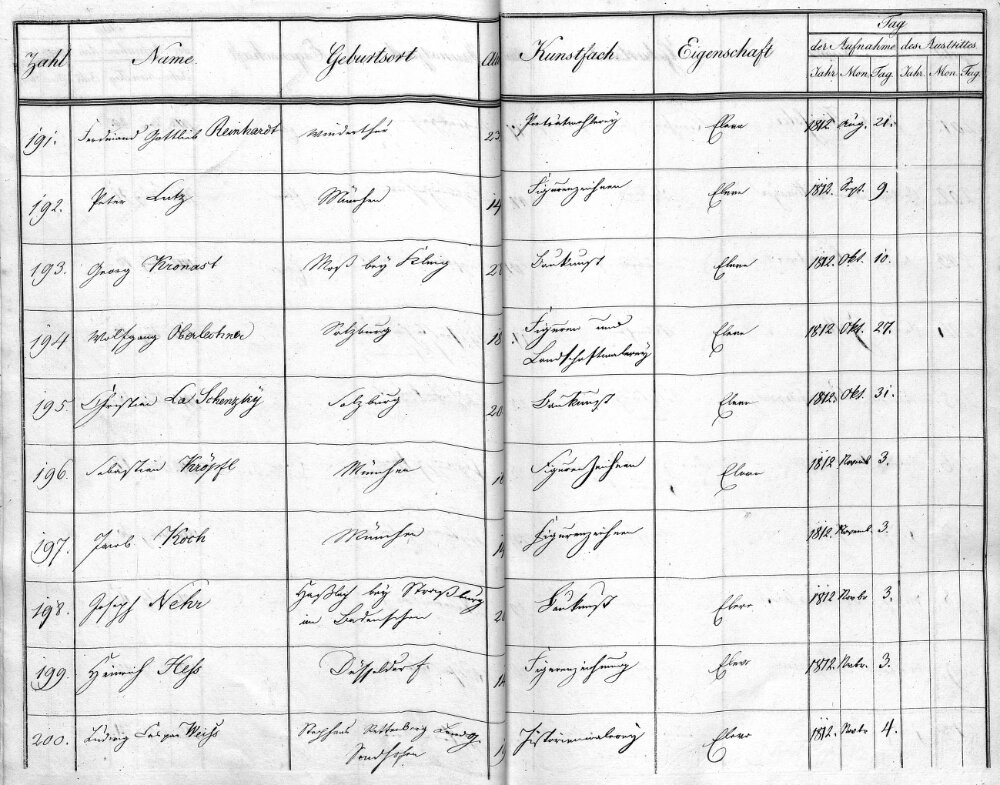 Zahl Name. Geburtsort Kunstfach. Eigenschaft Tag
der Aufnahme des Austrittes.
Jahr Mon. Tag. Jahr. Mon. Tag.
191. Ferdinand Gottlieb Reinhardt Winderthur 23 Eleve 1812 Aug. 21.
192. Peter Lutz München 14 Figurenzeichnen Eleve 1812. Sept. 9.
193. Georg Kronast Moß bey Kling Baukunst Eleve 1812. Okt. 10.
194 Wolfgang Oberlechner Salzburg 18 Figuren und Eleve 1812 Okt. 27.
Landschaftmalerey
195. Christian La Schenzky Salzburg 20 Baukunst Eleve 1812. Okt. 31.
196. Sebastian Kröpfl München Figurenzeichnen Eleve 1812 Novemb 3.
197. Jacob Koch München Figurenzeichnen 1812. Novemb. 3.
198. Joseph Nehr Haßlach bey Straßburg Baukunst Eleve 1812 Novbr 3.
im Badenschen
199. Heinrich Hess Düsseldorf. Figurenzeichnung Eleve 1812. Nvbr. 3.
200. Ludwig Caspar Weiss Rettenberg Landg. Historienmalerey Eleve 1812. Novbr 4.
Sondhofen